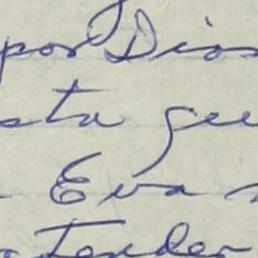 por Dios
sta gue
Eva
tender